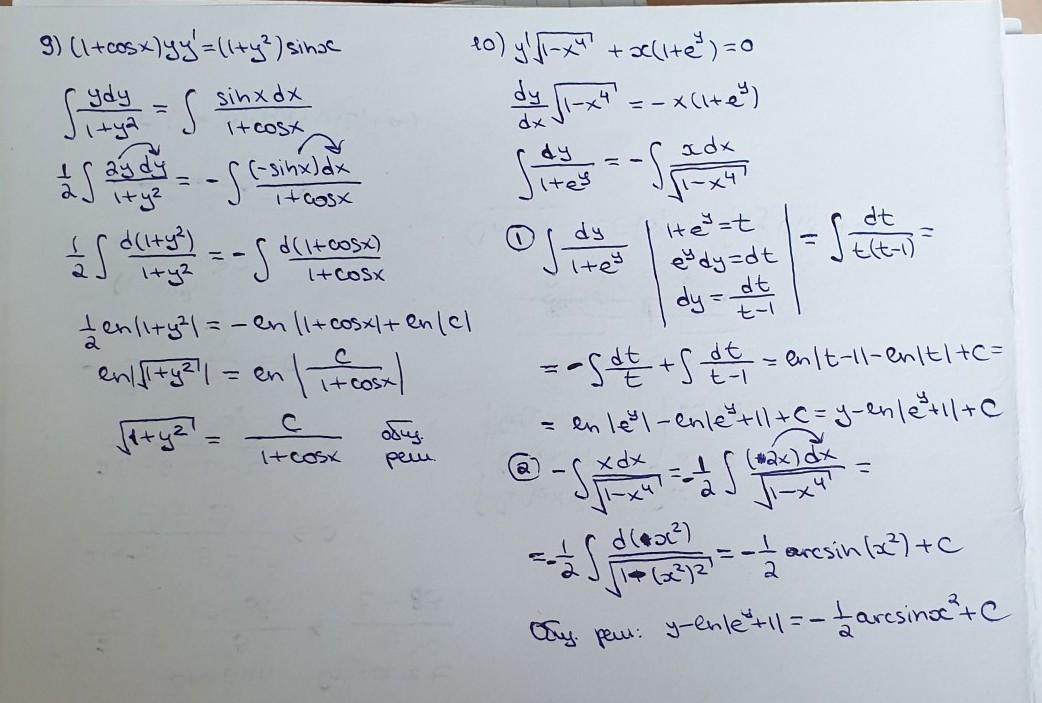 9) (1+cosx)yy'=(1+y²)sinx
∫ ydy/(1+y²) = ∫ sinxdx/(1+cosx)
1/2 ∫ 2ydy/(1+y²) = -∫ (-sinx)dx/(1+cosx)
1/2 ∫ d(1+y²)/(1+y²) = -∫ d(1+cosx)/(1+cosx)
1/2 ln|1+y²| = -ln|1+cosx|+ln|C|
ln|√(1+y²)| = ln|C/(1+cosx)|
√(1+y²) = C/(1+cosx) общ. реш.
10) y'√(1-x⁴) + x(1+e^y)=0
dy/dx √(1-x⁴) = -x(1+e^y)
∫ dy/(1+e^y) = -∫ xdx/√(1-x⁴)
① ∫ dy/(1+e^y) | 1+e^y=t
e^y dy=dt
dy=dt/(t-1) | = ∫ dt/(t(t-1)) =
= -∫ dt/t + ∫ dt/(t-1) = ln|t-1|-ln|t|+C=
= ln|e^y|-ln|e^y+1|+C= y-ln|e^y+1|+C
② -∫ xdx/√(1-x⁴) = -1/2 ∫ (2x)dx/√(1-x⁴) =
= -1/2 ∫ d(x²)/√(1-(x²)²) = -1/2 arcsin(x²)+C
Общ. реш: y-ln|e^y+1| = -1/2 arcsinx²+C